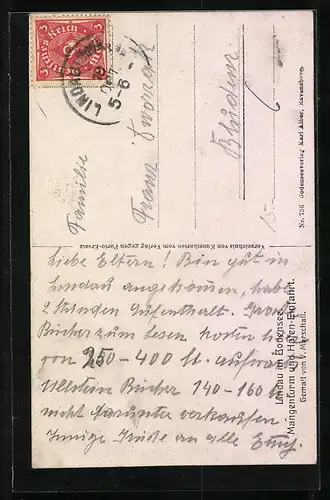 Deutsches Reich
3 3
LINDAU
5-6
Familie
Franz
6
15.-
Nr. 756 Bodenseeverlag Karl Alber, Ravensburg.
Verzeichnis von Kunstkarten vom Verlag gegen Porto-Ersatz
Lindau im Bodensee
Mangenturm und Hafen-Einfahrt.
Gemalt von V. Marschall.
Liebe Eltern! Bin gut in
Lindau angekommen, habe
2 Stunden Aufenthalt.
Bücher zum Lesen kosten
von 250-400 M. aufw.
Ullstein Bücher 140-160
nicht darunter verkaufen
Innige Grüße an alle Euch